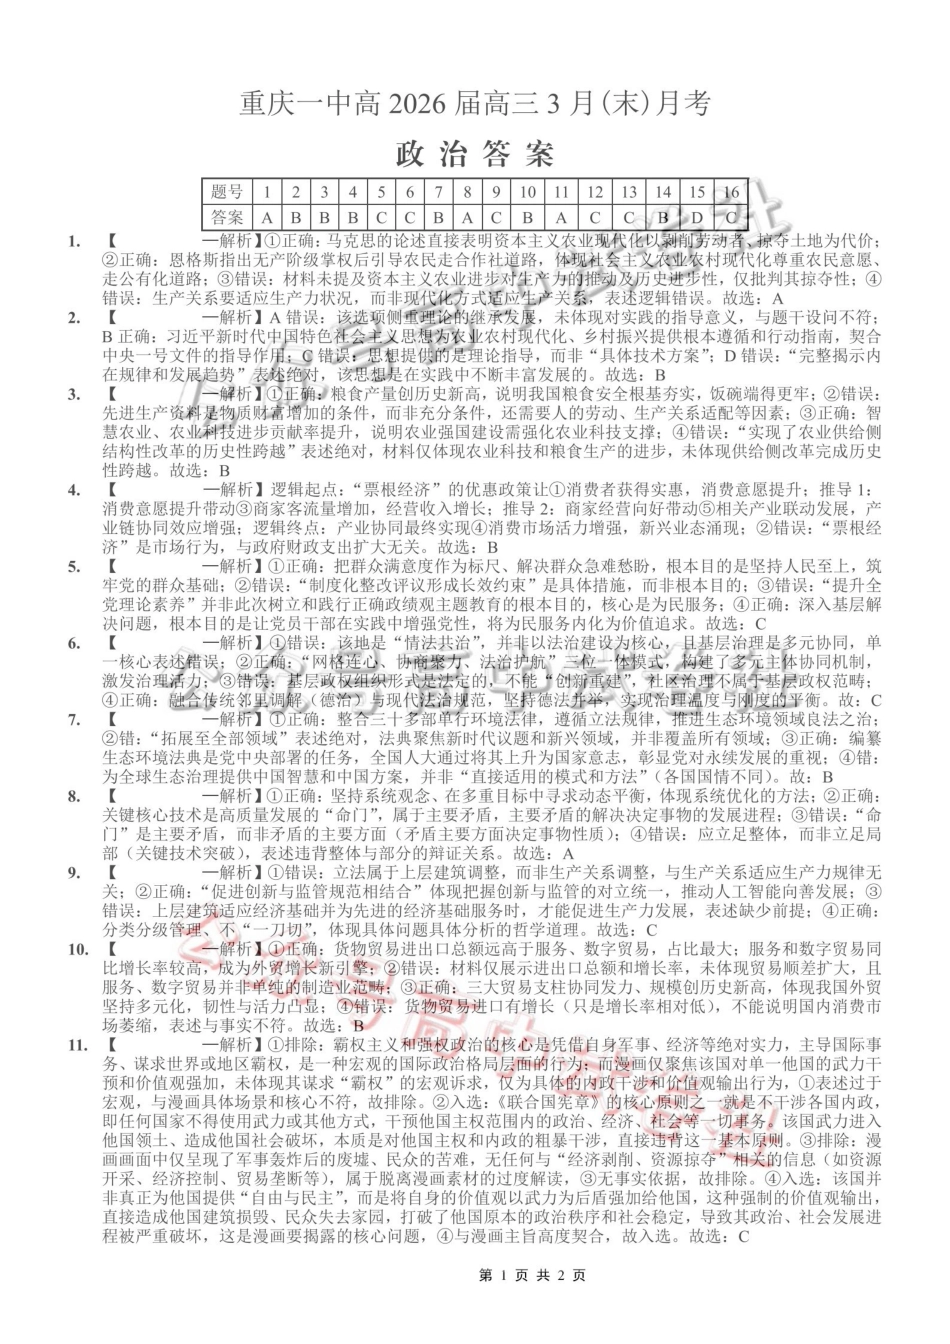 重庆一中高 2026 届高三 3 月(末)月考
政 治 答 案
题号 1 2 3 4 5 6 7 8 9 10 11 12 13 14 15 16
答案 A B B B C C B A C B A C C B D C
1. 【 —解析】①正确：马克思的论述直接表明资本主义农业现代化以剥削劳动者、掠夺土地为代价；
②正确：恩格斯指出无产阶级掌权后引导农民走合作社道路，体现社会主义农业农村现代化尊重农民意愿、
走公有化道路；③错误：材料未提及资本主义农业进步对生产力的推动及历史进步性，仅批判其掠夺性；④
错误：生产关系要适应生产力状况，而非现代化方式适应生产关系，表述逻辑错误。故选：A
2. 【 —解析】A 错误：该选项侧重理论的继承发展，未体现对实践的指导意义，与题干设问不符；
B 正确：习近平新时代中国特色社会主义思想为农业农村现代化、乡村振兴提供根本遵循和行动指南，契合
中央一号文件的指导作用；C 错误：思想提供的是理论指导，而非“具体技术方案”；D 错误：“完整揭示内
在规律和发展趋势”表述绝对，该思想是在实践中不断丰富发展的。故选：B
3. 【 —解析】①正确：粮食产量创历史新高，说明我国粮食安全根基夯实，饭碗端得更牢；②错误：
先进生产资料是物质财富增加的条件，而非充分条件，还需要人的劳动、生产关系适配等因素；③正确：智
慧农业、农业科技进步贡献率提升，说明农业强国建设需强化农业科技支撑；④错误：“实现了农业供给侧
结构性改革的历史性跨越”表述绝对，材料仅体现农业科技和粮食生产的进步，未体现供给侧改革完成历史
性跨越。故选：B
4. 【 —解析】逻辑起点：“票根经济”的优惠政策让①消费者获得实惠，消费意愿提升；推导 1：
消费意愿提升带动③商家客流量增加，经营收入增长；推导 2：商家经营向好带动⑤相关产业联动发展，产
业链协同效应增强；逻辑终点：产业协同最终实现④消费市场活力增强，新兴业态涌现；②错误：“票根经
济”是市场行为，与政府财政支出扩大无关。故选：B
5. 【 —解析】①正确：把群众满意度作为标尺、解决群众急难愁盼，根本目的是坚持人民至上，筑
牢党的群众基础；②错误：“制度化整改评议形成长效约束”是具体措施，而非根本目的；③错误：“提升全
党理论素养”并非此次树立和践行正确政绩观主题教育的根本目的，核心是为民服务；④正确：深入基层解
决问题，根本目的是让党员干部在实践中增强党性，将为民服务内化为价值追求。故选：C
6. 【 —解析】①错误：该地是“情法共治”，并非以法治建设为核心，且基层治理是多元协同，单
一核心表述错误；②正确：“网格连心、协商聚力、法治护航”三位一体模式，构建了多元主体协同机制，
激发治理活力；③错误：基层政权组织形式是法定的，不能“创新重建”，社区治理不属于基层政权范畴；
④正确：融合传统邻里调解（德治）与现代法治规范，坚持德法并举，实现治理温度与刚度的平衡。故：C
7. 【 —解析】①正确：整合三十多部单行环境法律，遵循立法规律，推进生态环境领域良法之治；
②错：“拓展至全部领域”表述绝对，法典聚焦新时代议题和新兴领域，并非覆盖所有领域；③正确：编纂
生态环境法典是党中央部署的任务，全国人大通过将其上升为国家意志，彰显党对永续发展的重视；④错：
为全球生态治理提供中国智慧和中国方案，并非“直接适用的模式和方法”（各国国情不同）。故：B
8. 【 —解析】①正确：坚持系统观念、在多重目标中寻求动态平衡，体现系统优化的方法；②正确：
关键核心技术是高质量发展的“命门”，属于主要矛盾，主要矛盾的解决决定事物的发展进程；③错误：“命
门”是主要矛盾，而非矛盾的主要方面（矛盾主要方面决定事物性质）；④错误：应立足整体，而非立足局
部（关键技术突破），表述违背整体与部分的辩证关系。故选：A
9. 【 —解析】①错误：立法属于上层建筑调整，而非生产关系调整，与生产关系适应生产力规律无
关；②正确：“促进创新与监管规范相结合”体现把握创新与监管的对立统一，推动人工智能向善发展；③
错误：上层建筑适应经济基础并为先进的经济基础服务时，才能促进生产力发展，表述缺少前提；④正确：
分类分级管理、不“一刀切”，体现具体问题具体分析的哲学道理。故选：C
10. 【 —解析】①正确：货物贸易进出口总额远高于服务、数字贸易，占比最大；服务和数字贸易同
比增长率较高，成为外贸增长新引擎；②错误：材料仅展示进出口总额和增长率，未体现贸易顺差扩大，且
服务、数字贸易并非单纯的制造业范畴；③正确：三大贸易支柱协同发力、规模创历史新高，体现我国外贸
坚持多元化，韧性与活力凸显；④错误：货物贸易进口有增长（只是增长率相对低），不能说明国内消费市
场萎缩，表述与事实不符。故选：B
11. 【 —解析】①排除：霸权主义和强权政治的核心是凭借自身军事、经济等绝对实力，主导国际事
务、谋求世界或地区霸权，是一种宏观的国际政治格局层面的行为；而漫画仅聚焦该国对单一他国的武力干
预和价值观强加，未体现其谋求“霸权”的宏观诉求，仅为具体的内政干涉和价值观输出行为，①表述过于
宏观，与漫画具体场景和核心不符，故排除。②入选：《联合国宪章》的核心原则之一就是不干涉各国内政，
即任何国家不得使用武力或其他方式，干预他国主权范围内的政治、经济、社会等一切事务。该国武力进入
他国领土、造成他国社会破坏，本质是对他国主权和内政的粗暴干涉，直接违背这一基本原则。③排除：漫
画画面中仅呈现了军事轰炸后的废墟、民众的苦难，无任何与“经济剥削、资源掠夺”相关的信息（如资源
开采、经济控制、贸易垄断等），属于脱离漫画素材的过度解读，③无事实依据，故排除。④入选：该国并
非真正为他国提供“自由与民主”，而是将自身的价值观以武力为后盾强加给他国，这种强制的价值观输出，
直接造成他国建筑损毁、民众失去家园，打破了他国原本的政治秩序和社会稳定，导致其政治、社会发展进
程被严重破坏，这是漫画要揭露的核心问题，④与漫画主旨高度契合，故入选。故选：C
第 1 页 共 2 页